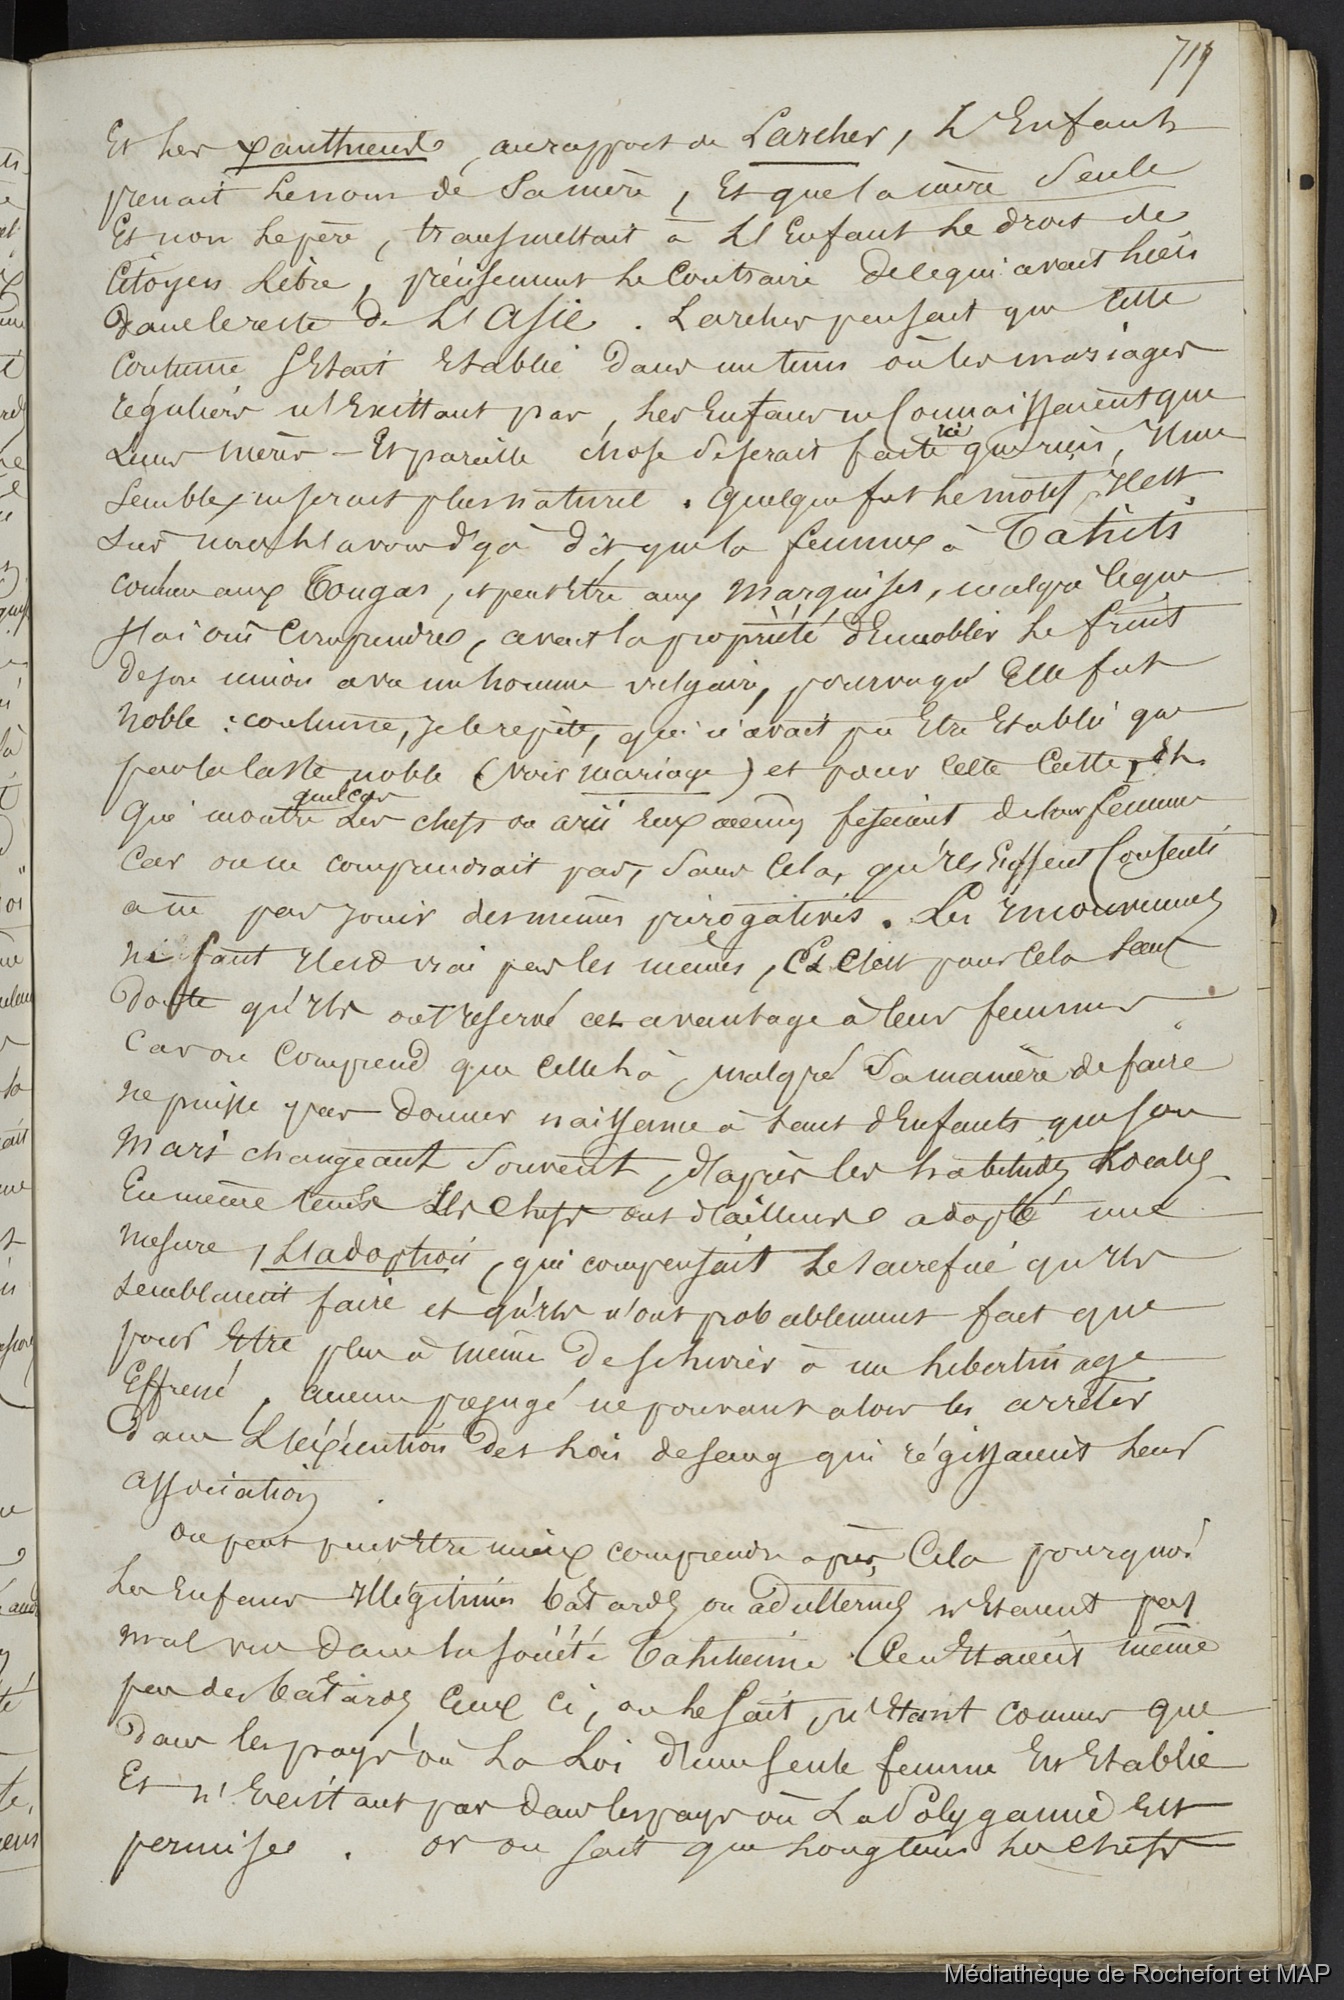 719
Et les xanthiens, au rapport de Larcher, L'Enfant
prenait le nom de sa mère, Et que la mère seule
Et non le père, transmettait à L'Enfant le droit de
Citoyen Libre, précisément le Contraire de ce qui avait lieu
dans le reste de L'Asie. Larcher pensait que cette
Coutume s'Etait Etablie dans un tems où les mariages
réguliers n'Existant pas, les Enfans ne Connaissaient que
Leurs mères - Et pareille chose se serait faite ici que rien, il me
semble, ne serait plus naturel. quelqu fut le motif, il est
sûr, nous l'avons déjà dit, que la femme à Tahiti
comme aux Tongas, et peut Etre aux Marquises, malgré ce que
j'ai ouï Comprendre, avait la propriété d'Ennoblir le fruit
de son union avec un homme vulgaire, pourvu qu'Elle fut
noble : coutume, je le repète, qui n'avait pu Etre Etablie que
par la Caste noble (voir mariage) et pour cette Caste, Et
qui montre quel cas Les chefs ou arii Eux mêmes fesaient de leur femme
Car on ne comprendrait pas, sans Cela, qu'ils Eussent Consenti
à ne pas jouir des mêmes prérogatives. Les inconvéniens
ne sont il est vrai pas les mêmes, Et c'est pour Cela sans
doute qu'ils ont reservé cet avantage à leurs femmes
Car on Comprend que celle là, malgré sa manière de faire
ne puisse pas donner naissance à tant d'Enfants que son
mari changeant souvent, d'après les habitudes Locales
En même tems Les Chefs ont d'ailleurs adopté une
mesure, L'adoption, qui compensait le sacrifice qu'ils
semblaient faire et qu'ils n'ont probablement fait que
pour Etre plus à même de se livrer à un libertinage
Effréné, aucun préjugé ne pouvant alors les arrêter
dans L'éxécution des lois de sang qui régissaient leur
association.
On peut peut Etre mieux comprendre après Cela pourquoi
les Enfans illégitimes bâtards ou adultérins n'Etaient pas
mal vus dans la société Tahitienne Ce n'Etaient même
pas des bâtards Ceux ci, on le sait, n'Etant connus que
dans les pays où La Loi d'une seule femme Est Etablie
Et n'Existant pas dans les pays où La Polygamie Est
permise. Or on sait que longtems les Chefs
Médiathèque de Rochefort et MAP